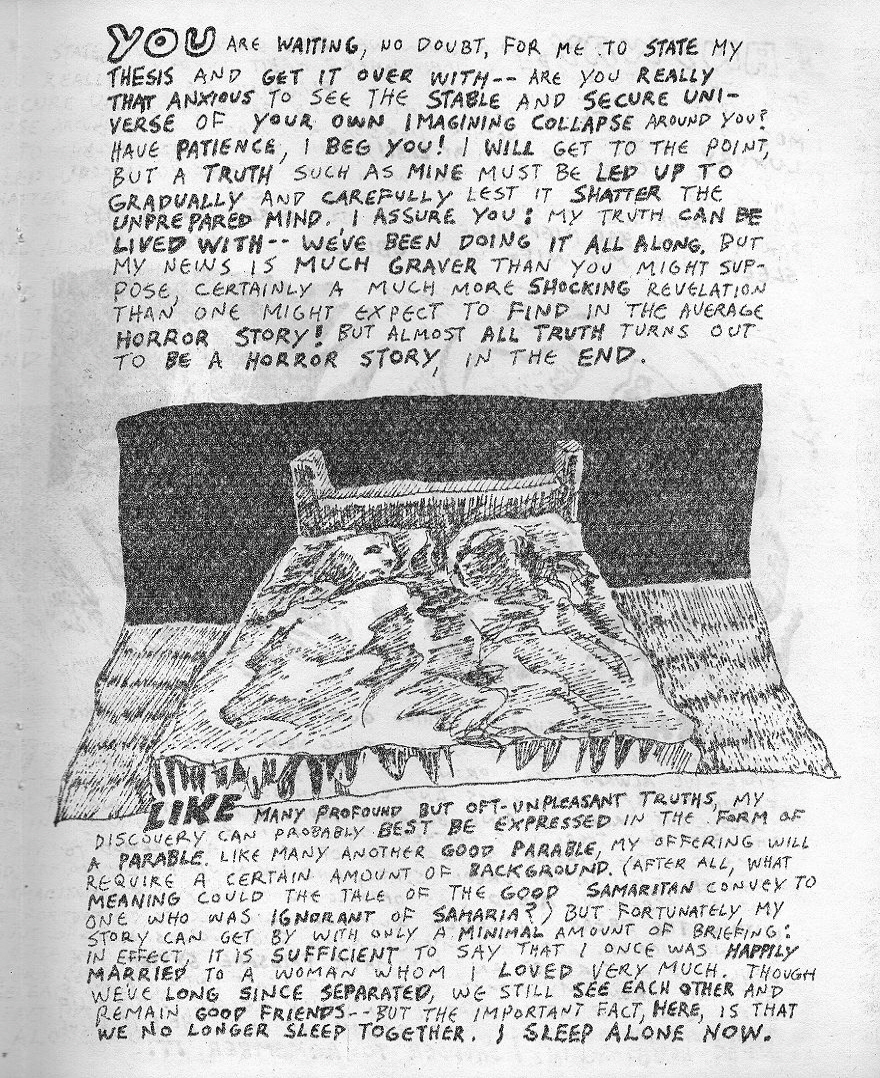 YOU ARE WAITING, NO DOUBT, FOR ME TO STATE MY
THESIS AND GET IT OVER WITH-- ARE YOU REALLY
THAT ANXIOUS TO SEE THE STABLE AND SECURE UNI-
VERSE OF YOUR OWN IMAGINING COLLAPSE AROUND YOU?
HAVE PATIENCE, I BEG YOU! I WILL GET TO THE POINT,
BUT A TRUTH SUCH AS MINE MUST BE LED UP TO
GRADUALLY AND CAREFULLY LEST IT SHATTER THE
UNPREPARED MIND. I ASSURE YOU: MY TRUTH CAN BE
LIVED WITH-- WE'VE BEEN DOING IT ALL ALONG. BUT
MY NEWS IS MUCH GRAVER THAN YOU MIGHT SUP-
POSE, CERTAINLY A MUCH MORE SHOCKING REVELATION
THAN ONE MIGHT EXPECT TO FIND IN THE AVERAGE
HORROR STORY! BUT ALMOST ALL TRUTH TURNS OUT
TO BE A HORROR STORY, IN THE END.
LIKE MANY PROFOUND BUT OFT-UNPLEASANT TRUTHS, MY
DISCOVERY CAN PROBABLY BEST BE EXPRESSED IN THE FORM OF
A PARABLE. LIKE MANY ANOTHER GOOD PARABLE, MY OFFERING WILL
REQUIRE A CERTAIN AMOUNT OF BACKGROUND. (AFTER ALL, WHAT
MEANING COULD THE TALE OF THE GOOD SAMARITAN CONVEY TO
ONE WHO WAS IGNORANT OF SAMARIA?) BUT FORTUNATELY, MY
STORY CAN GET BY WITH ONLY A MINIMAL AMOUNT OF BRIEFING:
IN EFFECT, IT IS SUFFICIENT TO SAY THAT I ONCE WAS HAPPILY
MARRIED TO A WOMAN WHOM I LOVED VERY MUCH. THOUGH
WE'VE LONG SINCE SEPARATED, WE STILL SEE EACH OTHER AND
REMAIN GOOD FRIENDS-- BUT THE IMPORTANT FACT, HERE, IS THAT
WE NO LONGER SLEEP TOGETHER. I SLEEP ALONE NOW.